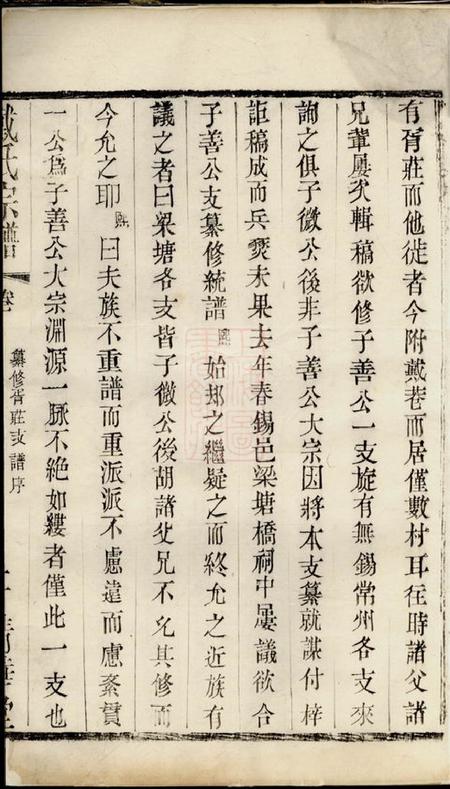 有胥莊而他徙者今附戴巷而居僅數村耳在時諸父諸
兄輩屢欠輯稿欲修子善公一支旋有無錫常州各支來
詢之俱子微公後非子善公大宗因將本支纂就謀付梓
詎稿成而兵燹未果去年春錫邑梁塘橋祠中屢議欲合
子善公支纂修統譜熙始却之繼疑之而終允之近族有
議之者曰梁塘各支皆子微公後胡諸父兄不允其修而
今允之耶熙曰夫族不重譜而重派派不慮遠而慮紊貫
一公為子善公大宗淵源一脉不絶如縷者僅此一支也
氏宗譜
卷
纂修胥莊支譜序